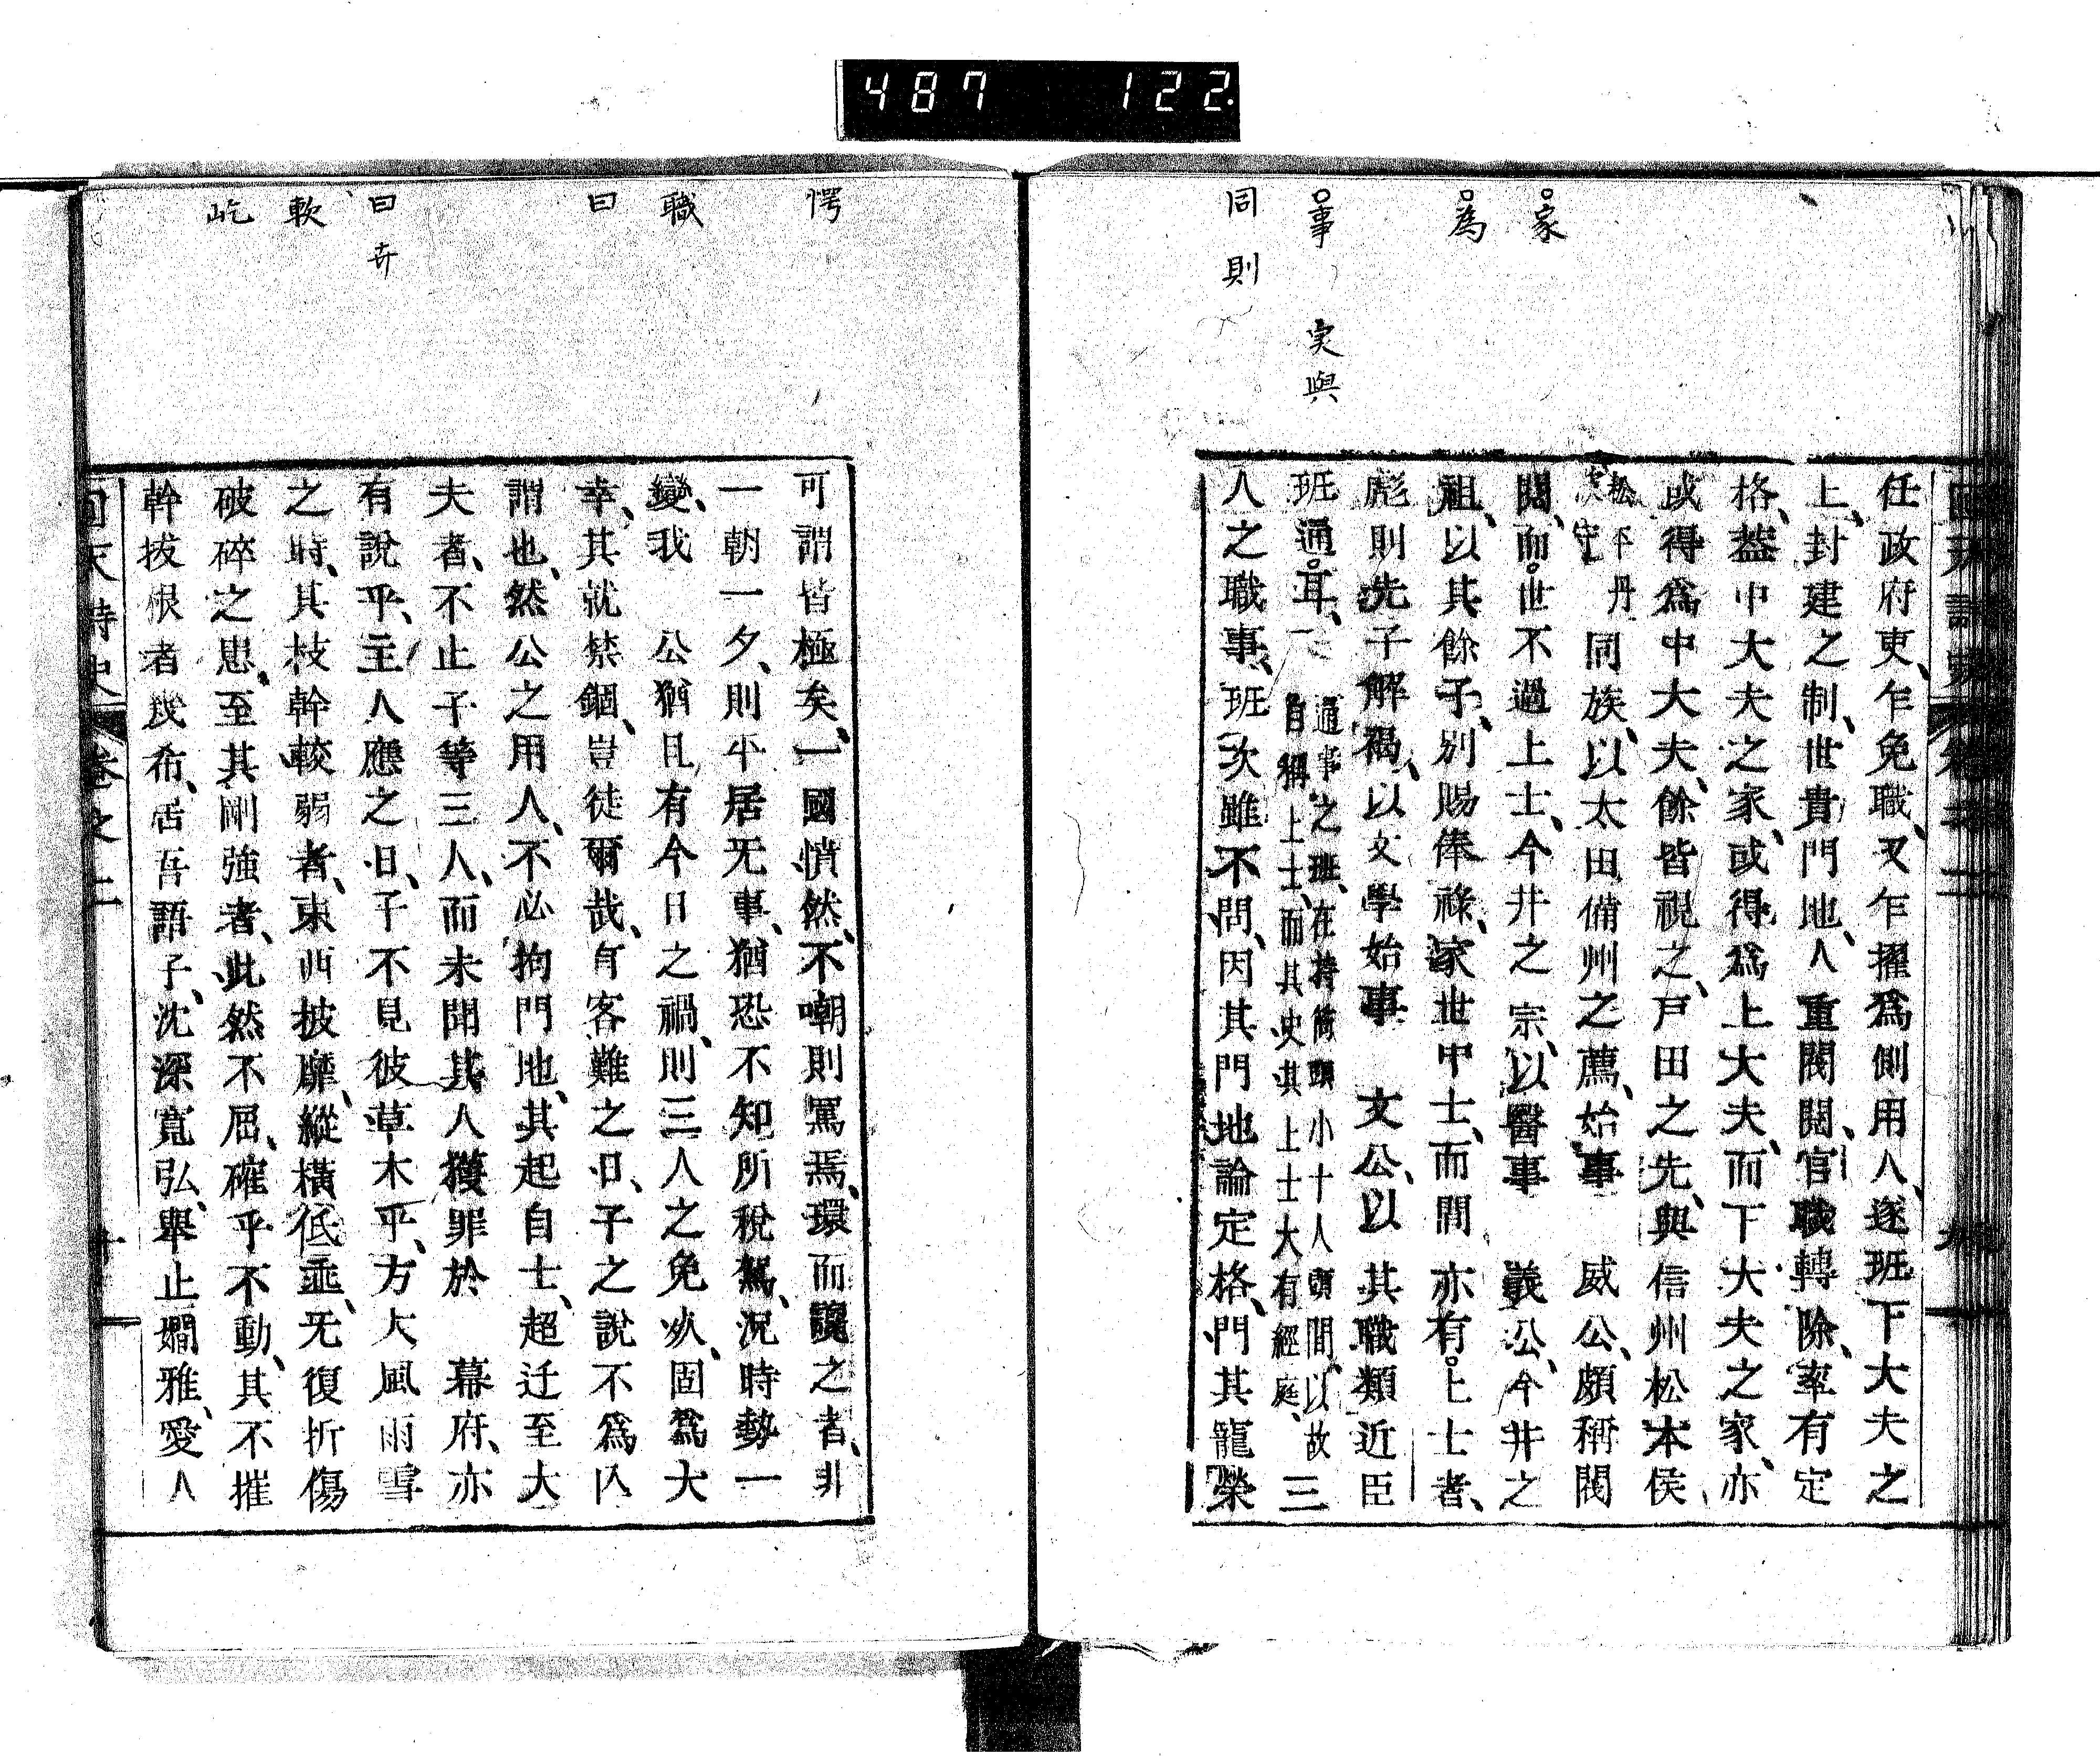 487 122.
家
為
事 実與
同則
任政府吏、乍免職、又乍擢爲側用人、遂班下大夫之
上、封建之制、世貴門地、人重閥閲、官職轉除、率有定
格、蓋中大夫之家、或得爲上大夫、而下大夫之家、亦
或得爲中大夫、餘皆視之、戸田之先、與信州松本侯
松平丹
守 同族、以太田備州之薦、始事 威公、頗稱閥
閲、而世不過上士、今井之宗、以醫事 義公、今井之
祖、以其餘子、別賜俸祿、家世中士、而間亦有上士者、
彪則先子解褐、以文學始事 文公、以其職類近臣
班通耳、
通事之班、在持筒頭小十人頭間、以故
自稱上士、而其史其上士大有經庭、
三
人之職事、班次雖不問、因其門地論定格、門其寵榮
愕
職
曰
曰 卉
軟
屹
可謂皆極矣、一國憤然、不嘲則罵焉、環而譏之者、非
一朝一夕、則平居无事、猶恐不知所稅駕、況時勢一
變、我 公猶且有今日之禍、則三人之免死、固爲大
幸、其就禁錮、豈徒爾哉、有客難之曰、子之說不爲
謂也、然公之用人、不必拘門地、其起自士、超迁至大
夫者、不止子等三人、而未聞其人獲罪於 幕府、亦
有說乎、主人應之曰、子不見彼草木乎、方大風雨雪
之時、其枝幹較弱者、東西披靡、縱橫低垂、无復折傷
破碎之患、至其剛強者、屹然不屈、確乎不動、其不摧
幹拔根者幾希、居吾語子、沈深寬弘、舉止嫺雅、愛人
回天詩史 卷之上 十